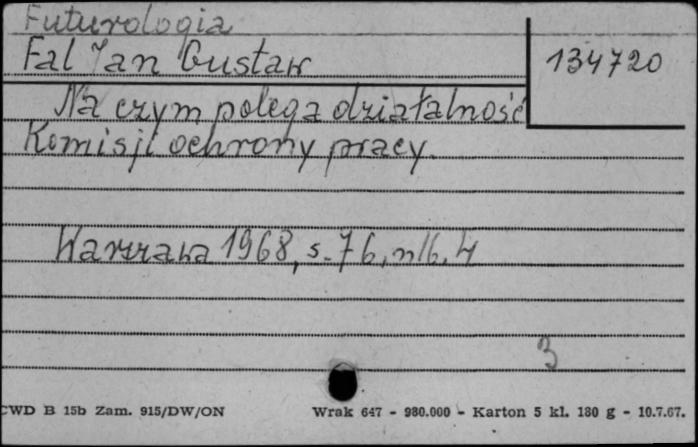 Futurologia
Fal Jan Gustaw
134720
Na czym polega działalność
Komisji ochrony pracy.
Warszawa 1968, s. 76, nlb. 4
3
CWD B 15b Zam. 915/DW/ON
Wrak 647 - 980.000 - Karton 5 kl. 180 g - 10.7.67.